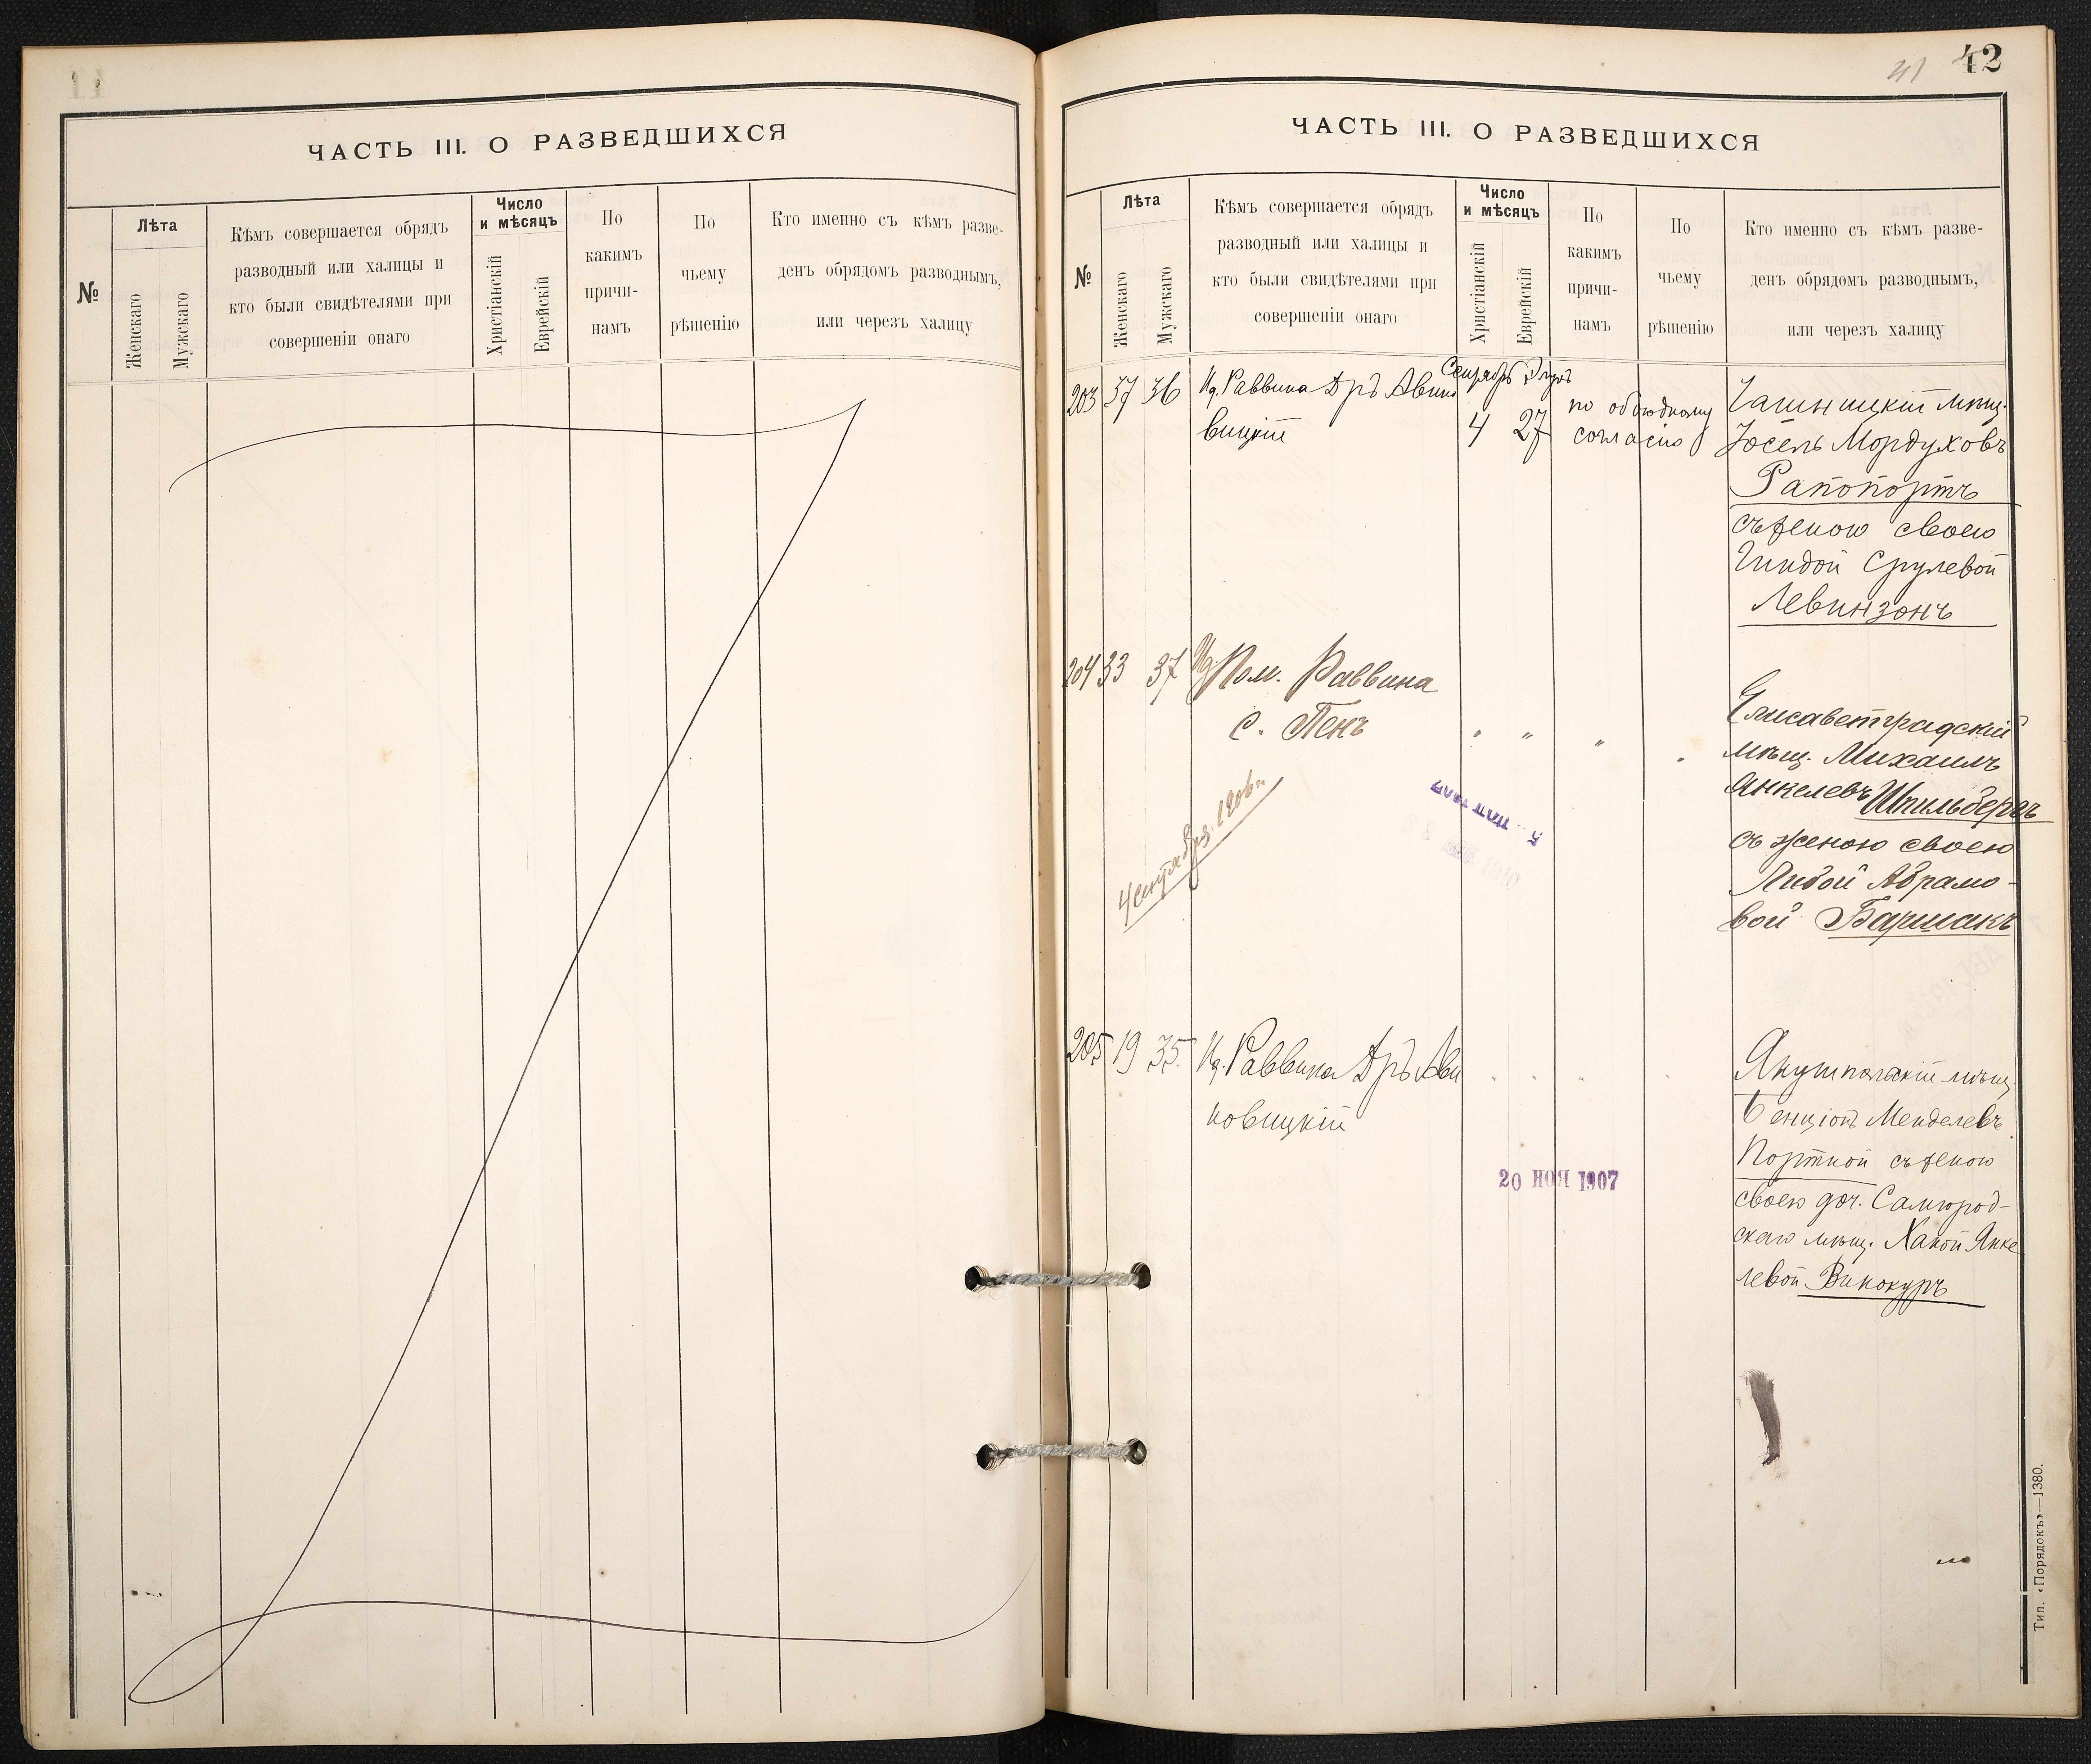 ЧАСТЬ III. О РАЗВЕДШИХСЯ
№
Лѣта
Женскаго
Мужскаго
Кѣмъ совершается обрядъ
разводный или халицы и
кто были свидѣтелями при
совершеніи онаго
Число
и мѣсяцъ
Христіанскій
Еврейскій
По
какимъ
причи-
намъ
По
чьему
рѣшенію
Кто именно съ кѣмъ разве-
денъ обрядомъ разводнымъ,
или черезъ халицу
41 42
ЧАСТЬ III. О РАЗВЕДШИХСЯ
№
Лѣта
Женскаго
Мужскаго
Кѣмъ совершается обрядъ
разводный или халицы и
кто были свидѣтелями при
совершеніи онаго
Число
и мѣсяцъ
Христіанскій
Еврейскій
По
какимъ
причи-
намъ
По
чьему
рѣшенію
Кто именно съ кѣмъ разве-
денъ обрядомъ разводнымъ,
или черезъ халицу
203 37 36
И д. Раввина Д-ръ Авино
вицкій
Сентябрь Элулъ
4 27
по обоюдному
согласію
мѣщ.
Іосель Мордуховъ
Рапопортъ
съ женою своею
Гиндой Срулевой
Левинзонъ
204 33 37
И д. Пом. Раввина
С. Пенъ
" " " "
4 сентября 1906 г.
Елисаветградскій
мѣщ. Михаилъ
Янкелевъ Шпильбергъ
съ женою своею
Либой Абрамо-
вой Баршакъ
205 19 35
И д. Раввина Д-ръ Ави
новицкій
" " " "
20 НОЯ 1907
Янушпольскій мѣщ.
Бенціонъ Менделевъ
Портной съ женою
своею доч. Самгород-
скаго мѣщ. Ханой Янке
левой Винокуръ
Тип. «Порядокъ»—1380.